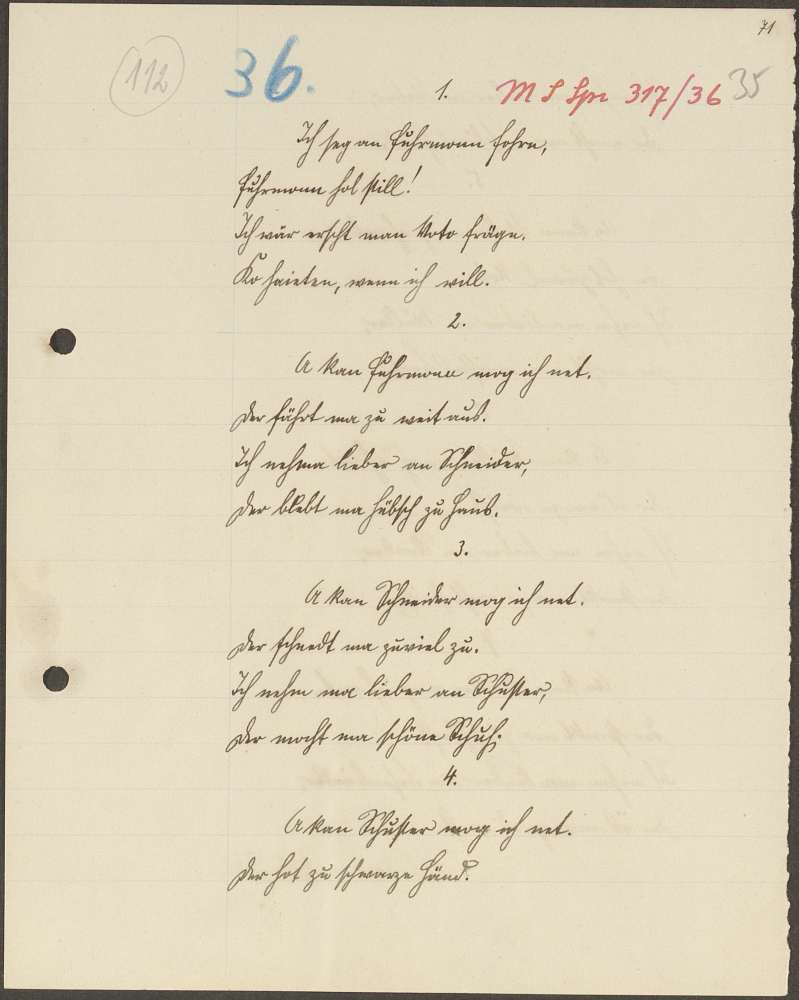 71
112
36.
1. M S Spr 317/36 35
Ich seg an Fuhrmonn fohrn,
Fuhrmonn hol still!
Ich wär erscht man Voto fräge.
Ko haieten, wenn ich will.
2.
A kan Fuhrmonn mog ich net.
Der fährt ma zu weit aus.
Ich nehma lieber an Schneider,
Der blebt ma hübsch zu Haus.
3.
A kan Schneider mog ich net.
Der schnedt ma zuviel zu.
Ich nehm ma lieber an Schuster,
Der mocht ma schöne Schuh.
4.
A kan Schuster mog ich net.
Der hot zu schwarze Händ.